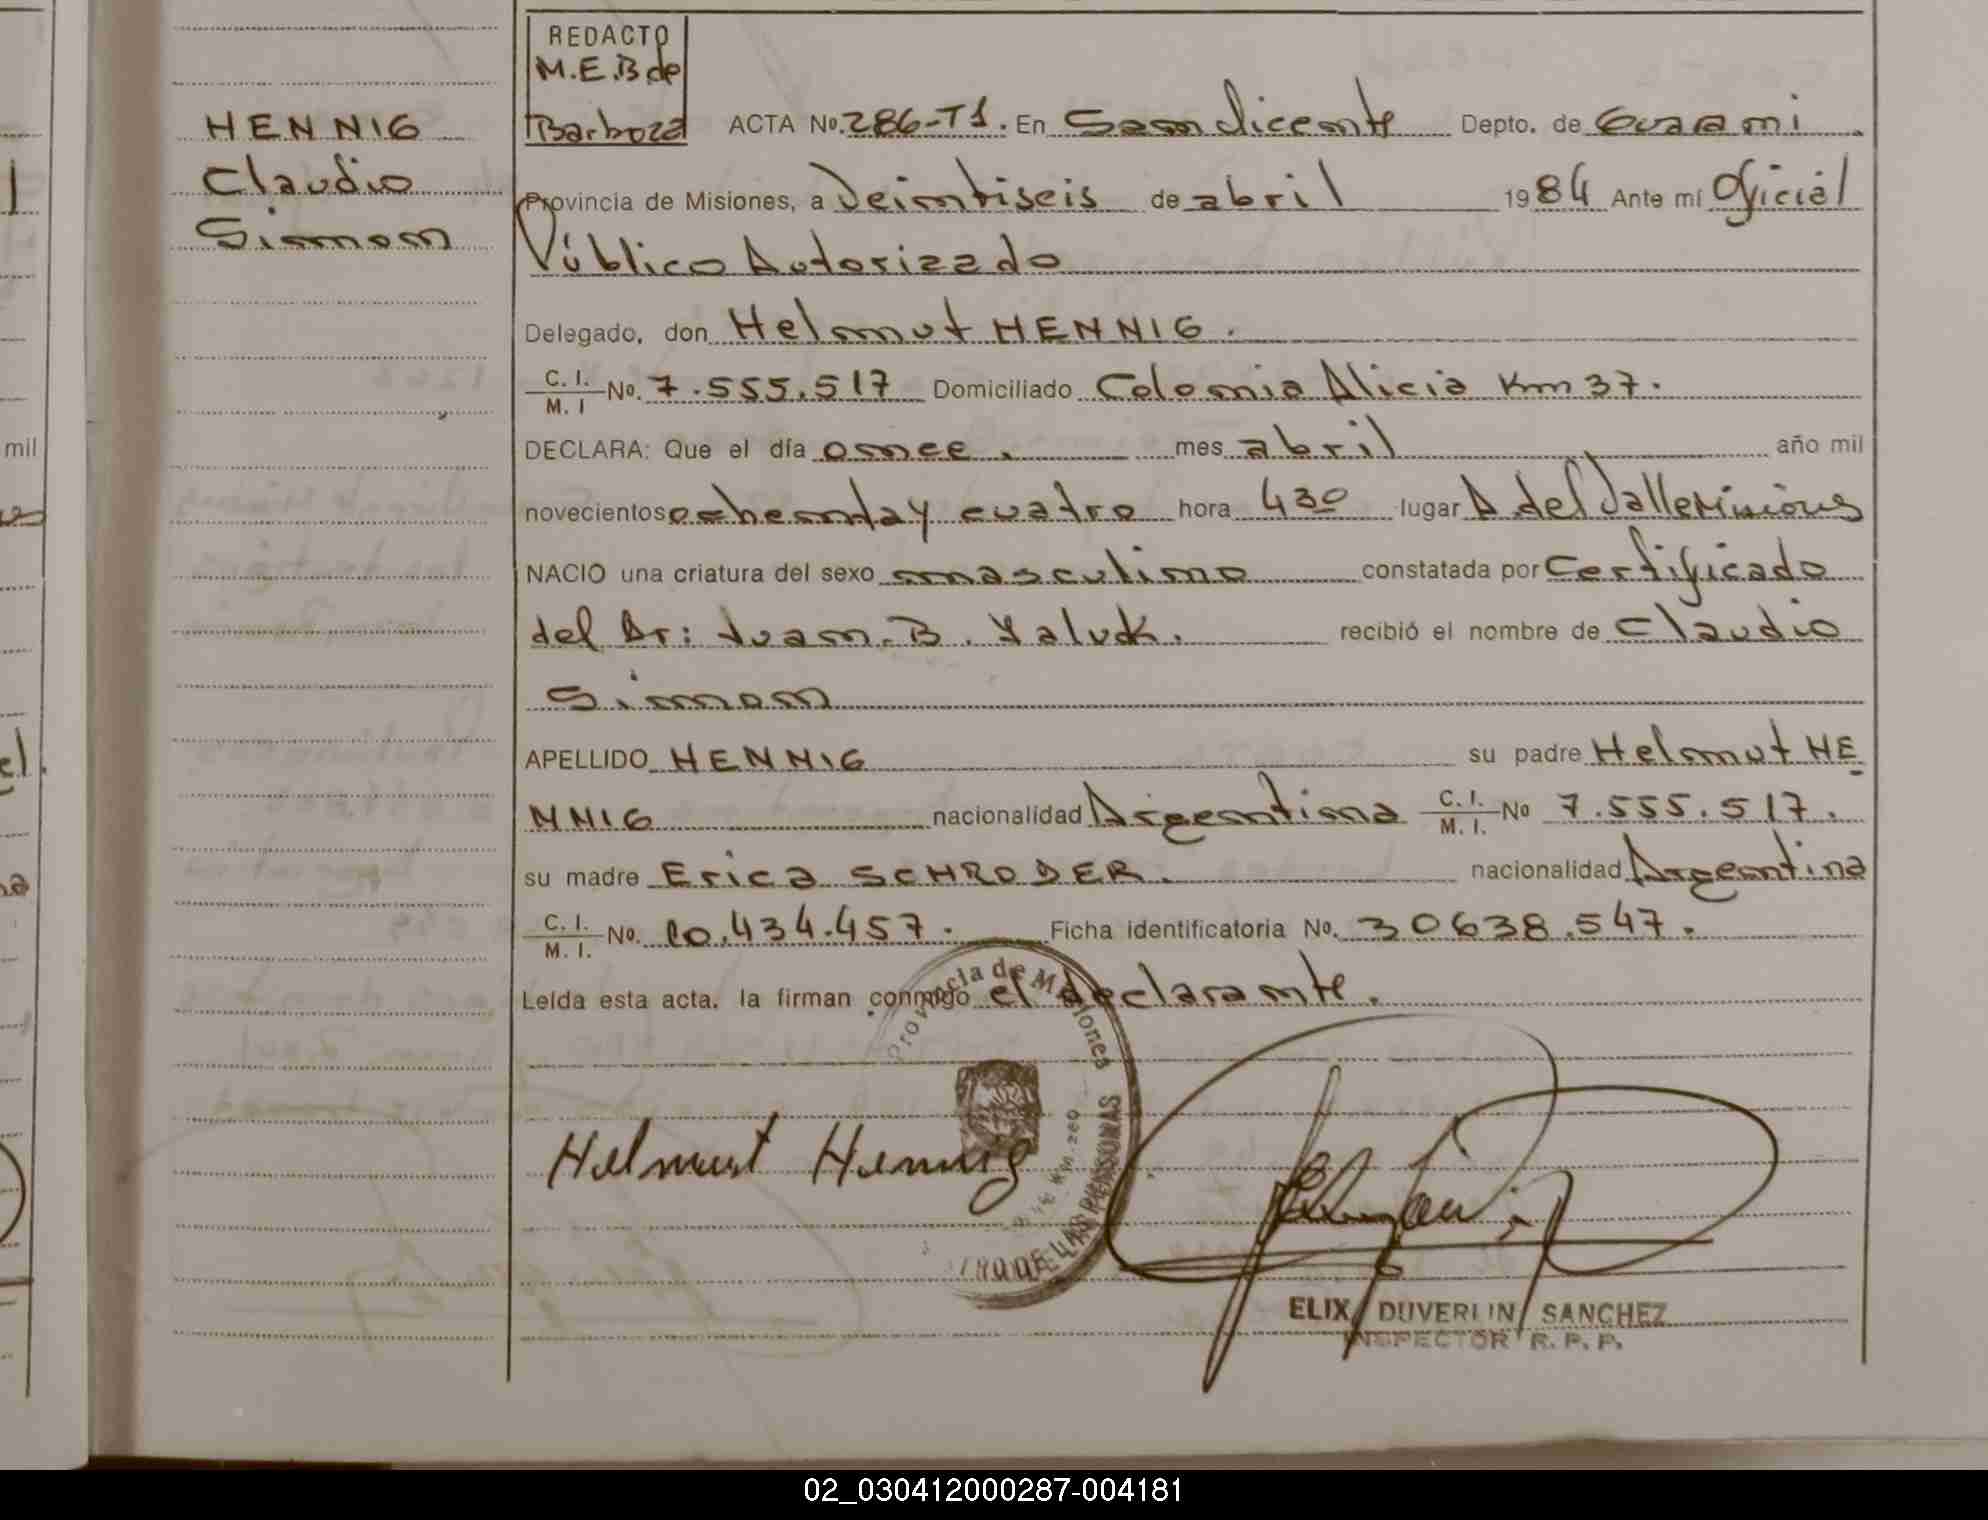 HENNIG
Claudio
Simon
REDACTO
M.E.B de
Barboza
ACTA No. 286-T1. En San Vicente Depto. de Guarani
Provincia de Misiones, a Veintiseis de abril 1984 Ante mí Oficial
Público Autorizado
Delegado, don Helmut HENNIG.
C. I. / M. I No. 7.555.517 Domiciliado Colonia Alicia Km 37.
DECLARA: Que el día once. mes abril año mil
novecientos ochenta y cuatro hora 430 lugar A. del Valle Misiones
NACIO una criatura del sexo masculino constatada por Certificado
del Dr: Juan B. Yaluk. recibió el nombre de Claudio
Simon
APELLIDO HENNIG su padre Helmut HE
NNIG nacionalidad Argentina C. I. / M. I. No 7.555.517.
su madre Erica SCHRODER. nacionalidad Argentina
C. I. / M. I. No. 10.434.457. Ficha identificatoria No. 30638.547.
Leída esta acta, la firman conmigo el declarante.
Provincia de Misiones
DE LAS PERSONAS
Helmut Hennig
ELIX DUVERLIN SANCHEZ
INSPECTOR R. P. P.
mil
02_030412000287-004181